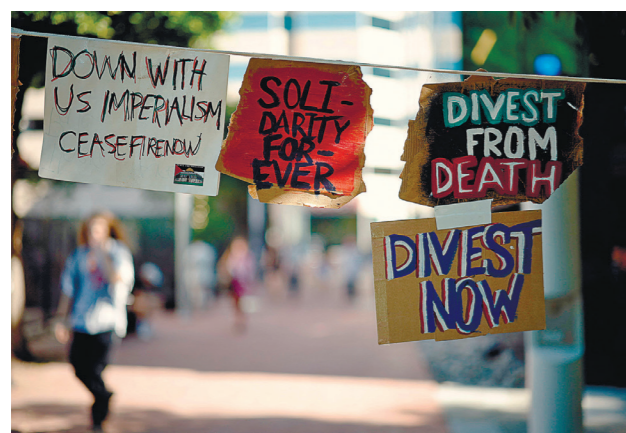 DOWN WITH
US IMPERIALISM
CEASEFIRE NOW
SOLI-
DARITY
FOR-
EVER
DIVEST
FROM
DEATH
DIVEST
NOW